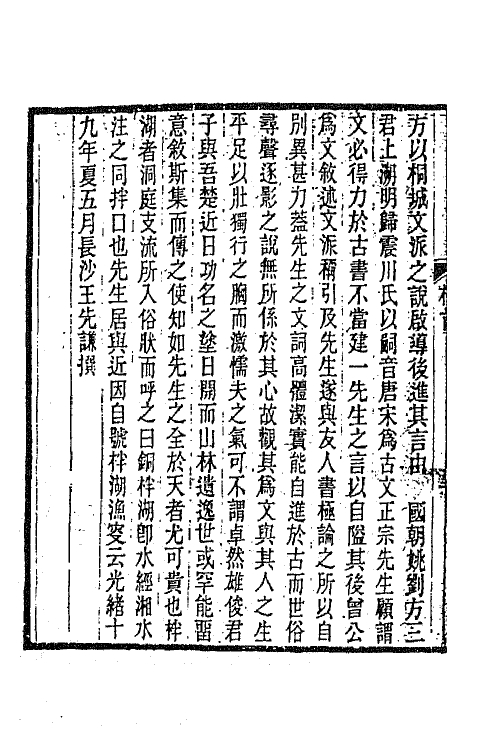 方以桐城文派之說啟導後進其言由　國朝姚劉方三
君上溯明歸震川氏以嗣音唐宋爲古文正宗先生顧謂
文必得力於古書不當建一先生之言以自隘其後曾公
爲文敘述文派稱引及先生遂與友人書極論之所以自
別異甚力蓋先生之文詞高體潔實能自進於古而世俗
尋聲逐影之說無所係於其心故觀其爲文與其人之生
平足以壯獨行之胸而激懦夫之氣可不謂卓然雄俊君
子與吾楚近日功名之塗日開而山林遺逸世或罕能畱
意敘斯集而傳之使知如先生之全於天者尤可貴也柈
湖者洞庭支流所入俗狀而呼之曰銅柈湖卽水經湘水
注之同拌口也先生居與近因自號柈湖漁叟云光緒十
九年夏五月長沙王先謙撰